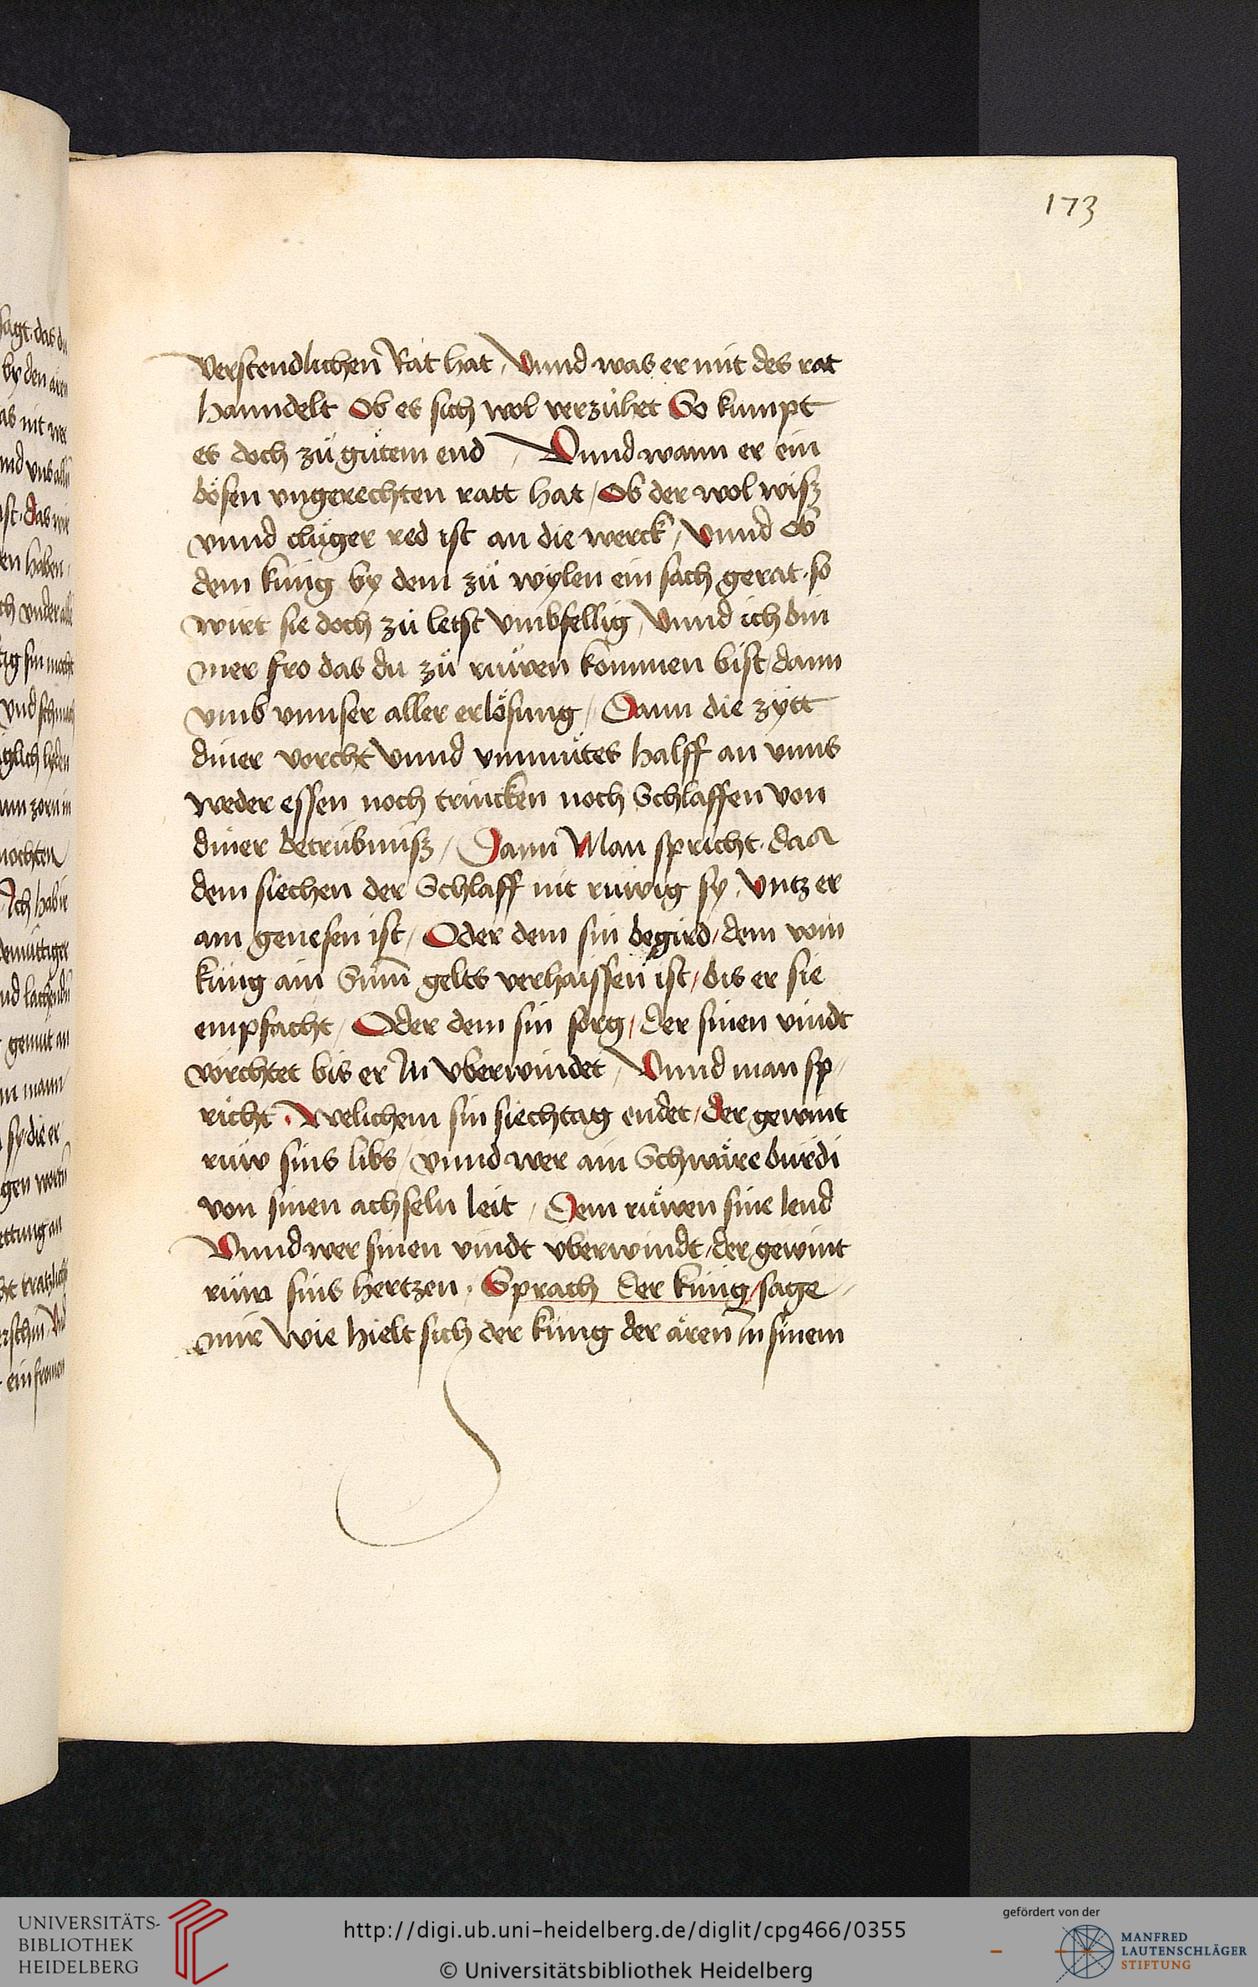 173
verstendlichen Rat hat / Vnnd was er mit des rat
hanndelt Ob es sich wol verzühet So kumpt
es doch zü gütem end / Vnnd wann er ein
bösen vngerechten ratt hat / Ob der wol wisz
vnnd clüger red ist an die werck / Vnnd ob
dem küng by dem zü wylen ein sach gerat · so
wirt sie doch zü letst vmbfellig / Vnnd ich bin
mer fro das du zü rüwen kommen bist / dann
vmb vnnser aller erlösung / Dann die zytt
diner vorcht Vnnd vnmütes halff an vnns
weder essen noch trincken noch Schlaffen von
diner betrübnisz / Dann Man spricht · das
dem siechen der Schlaff nit rüwig sy / Vntz er
am genesen ist / Oder dem sin begird / dem vom
küng ain Sum̄ gelts verhaissen ist / bis er sie
empfacht / Oder dem sin sorg / der sinen vindt
vörchtet bis er In vberwindet / Vnnd man sp-
richt · Welichem sin siechtag endet / der gewint
rüw sins libs / vnnd wer ain Schwäre bürdi
von sinen achseln leit / Dem rüwen sine lend
Vnnd wer sinen vindt vberwindt / der gewint
rüw sins hertzen · Sprach der küng / sage
mir wie hielt sich der küng der aren In sinem
UNIVERSITÄTS-
BIBLIOTHEK
HEIDELBERG
http://digi.ub.uni-heidelberg.de/diglit/cpg466/0355
© Universitätsbibliothek Heidelberg
gefördert von der
MANFRED
LAUTENSCHLÄGER
STIFTUNG